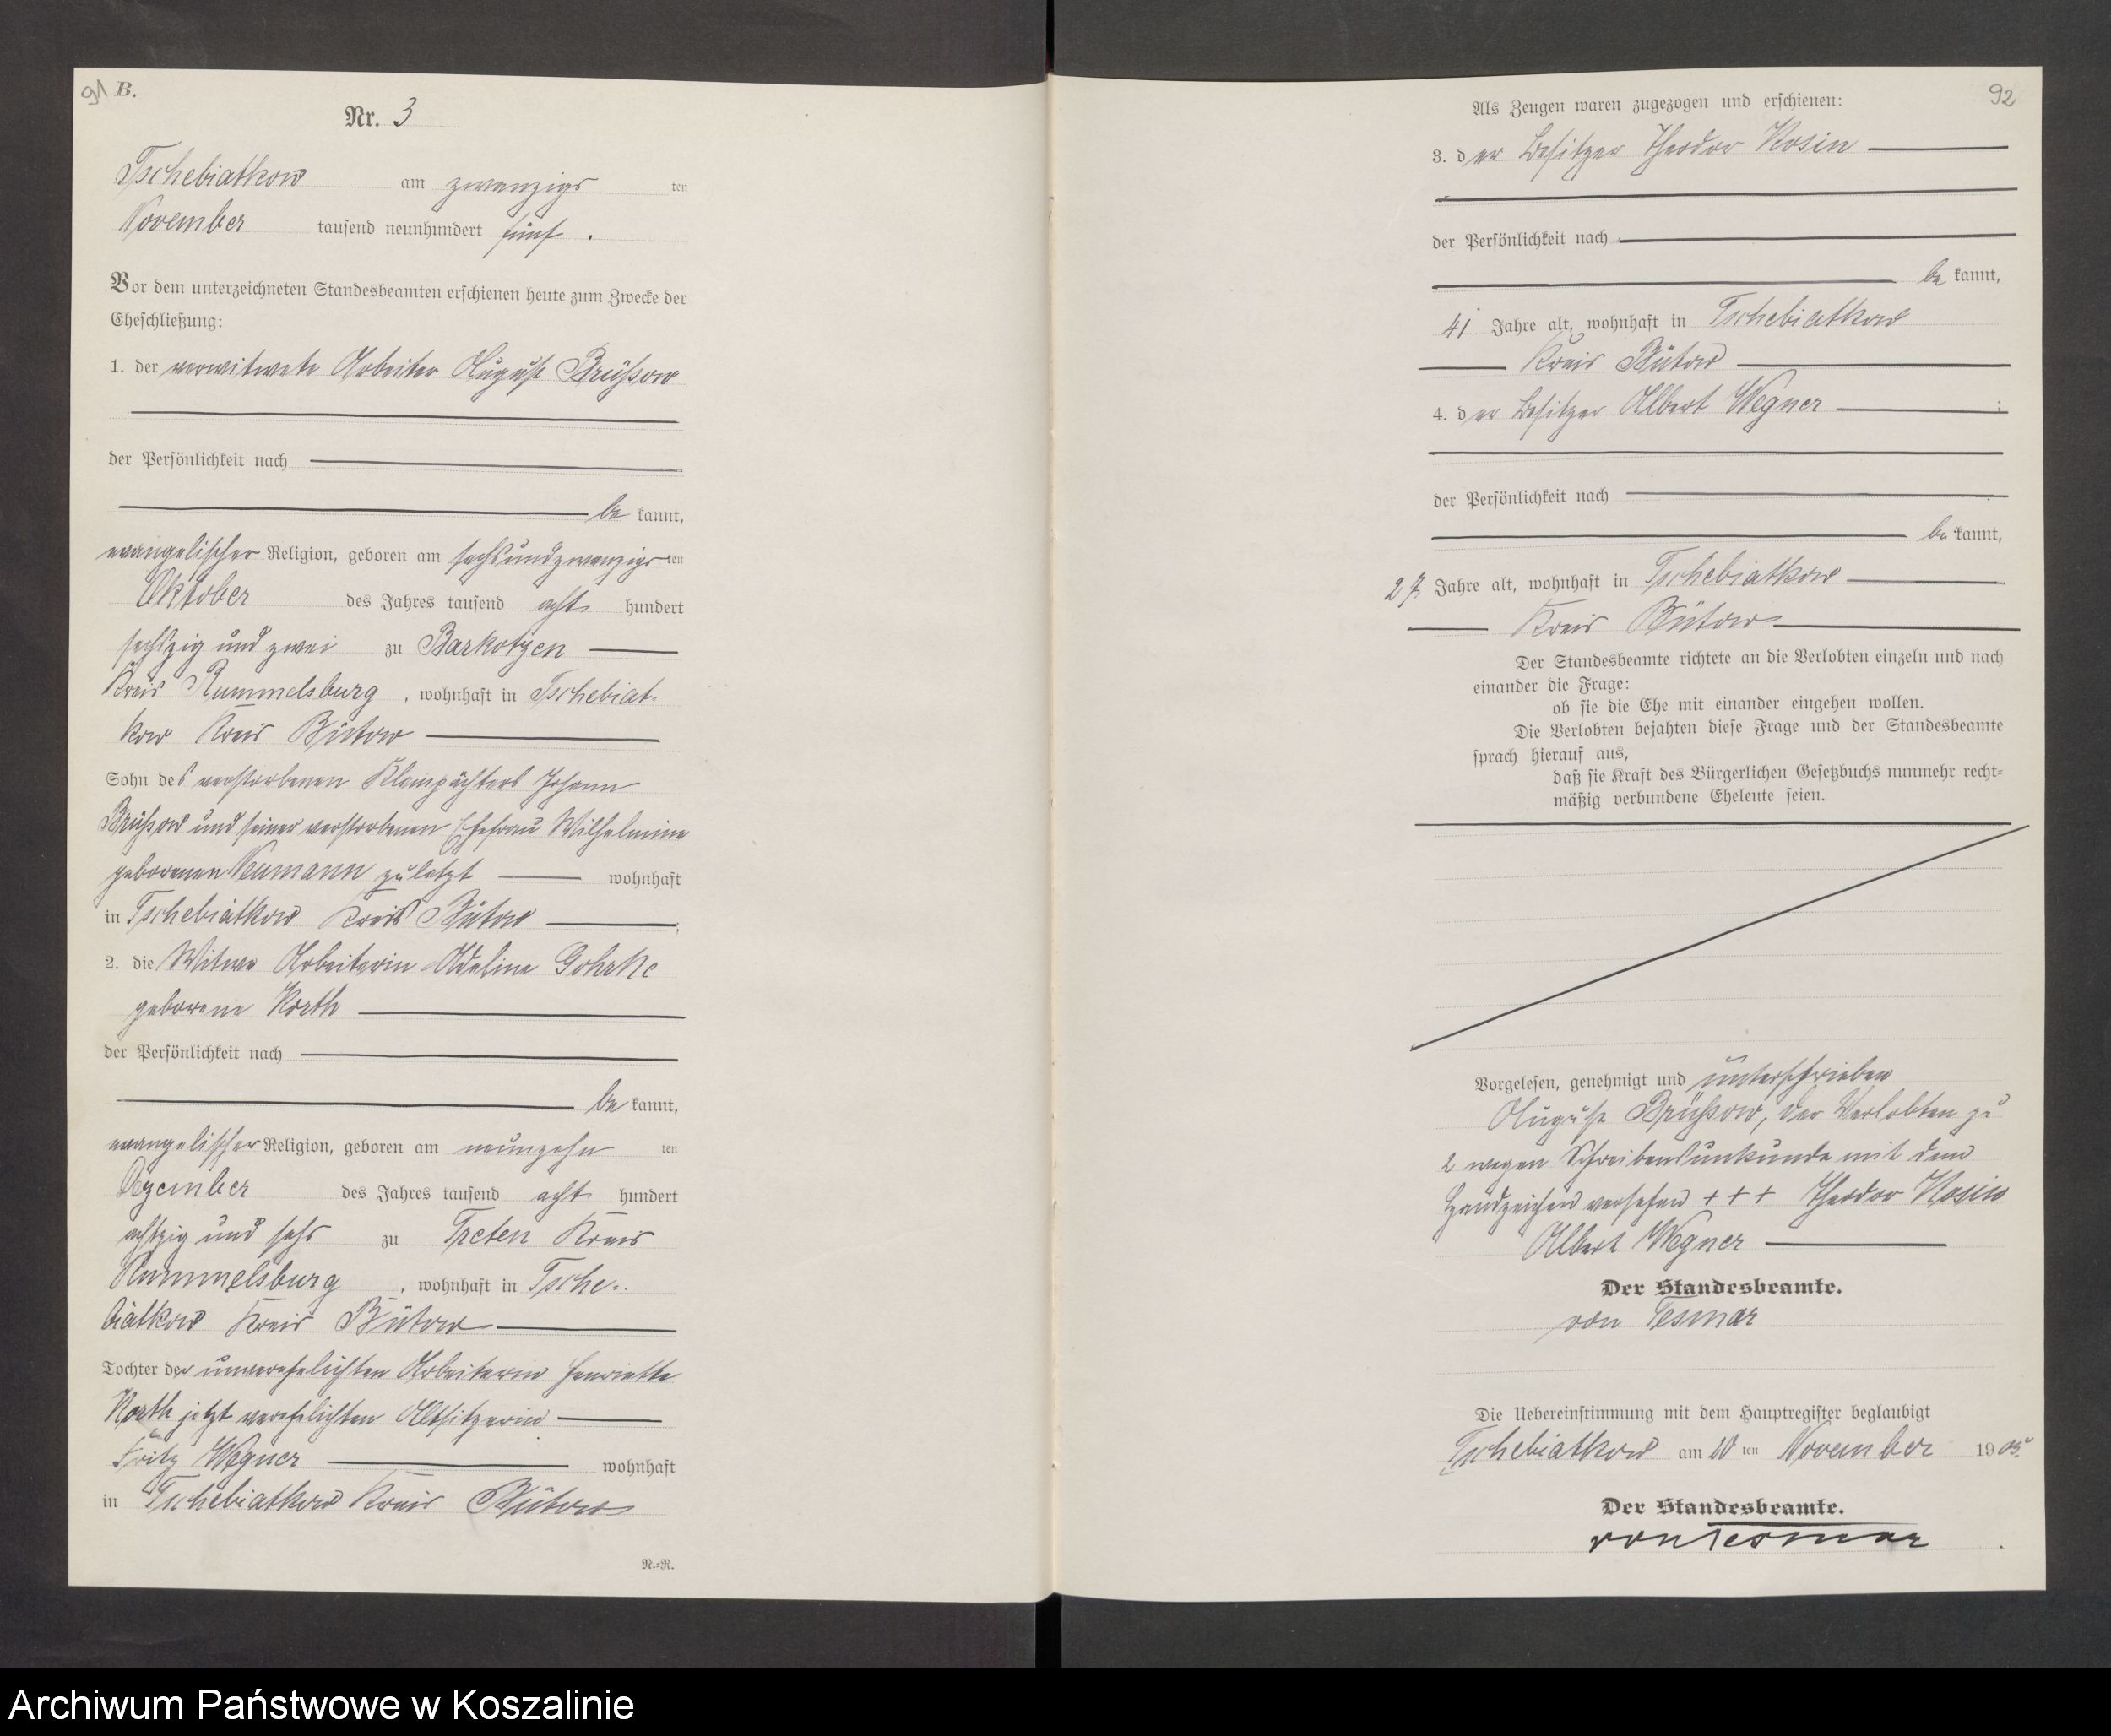 91 B.
Nr. 3
Tschebiatkow am zwanzigs ten
November tausend neunhundert fünf .
Vor dem unterzeichneten Standesbeamten erschienen heute zum Zwecke der
Eheschließung:
1. der verwitwete Arbeiter August Brüßow
der Persönlichkeit nach
be kannt,
evangelischer Religion, geboren am sechsundzwanzigs ten
Oktober des Jahres tausend acht hundert
sechszig und zwei zu Barkotzen
Kreis Rummelsburg , wohnhaft in Tschebiat-
kow Kreis Bütow
Sohn des verstorbenen Kleinpächters Johann
Brüßow und seiner verstorbenen Ehefrau Wilhelmine
geborenen Neumann zuletzt wohnhaft
in Tschebiatkow Kreis Bütow ;
2. die Witwe Arbeiterin Adeline Gohrke
geborene Korth
der Persönlichkeit nach
be kannt,
evangelischer Religion, geboren am neunzehn ten
Dezember des Jahres tausend acht hundert
achtzig und sechs zu Treten Kreis
Rummelsburg , wohnhaft in Tsche-
biatkow Kreis Bütow
Tochter der unverehelichten Arbeiterin Henriette
Korth jetzt verehelichten Altsitzerin
Fritz Wegner wohnhaft
in Tschebiatkow Kreis Bütow
N.=N.
92
Als Zeugen waren zugezogen und erschienen:
3. der Besitzer Theodor Kosin
der Persönlichkeit nach
be kannt,
41 Jahre alt, wohnhaft in Tschebiatkow
Kreis Bütow
4. der Besitzer Albert Wegner ;
der Persönlichkeit nach
be kannt,
27 Jahre alt, wohnhaft in Tschebiatkow
Kreis Bütow
Der Standesbeamte richtete an die Verlobten einzeln und nach
einander die Frage:
ob sie die Ehe mit einander eingehen wollen.
Die Verlobten bejahten diese Frage und der Standesbeamte
sprach hierauf aus,
daß sie Kraft des Bürgerlichen Gesetzbuchs nunmehr recht=
mäßig verbundene Eheleute seien.
Vorgelesen, genehmigt und unterschrieben
August Brüßow, der Verlobten zu
2 wegen Schreibensunkunde mit dem
Handzeichen versehen + + + Theodor Kosin
Albert Wegner
Der Standesbeamte.
von Tesmar
Die Uebereinstimmung mit dem Hauptregister beglaubigt
Tschebiatkow am 20 ten November 1905
Der Standesbeamte.
von Tesmar
Archiwum Państwowe w Koszalinie